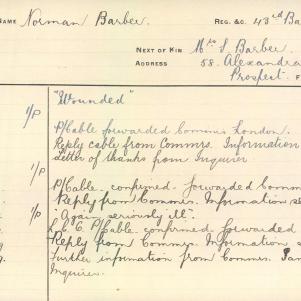 NAME Norman Barber. REG. &C. 43rd Ba
NEXT OF KIN Mrs S. Barber.
ADDRESS 58. Alexandra
Prospect. F
"Wounded"
1/p
P/Cable forwarded Commrs London.
Reply cable from Commrs. Information
Letter of thanks from Inquirer
1/p
P/Cable confirmed forwarded Comm
Reply from Commrs. Information se
1/p "Again seriously ill".
P/Cable confirmed forwarded
Reply from Commrs. Information s
Further information from Commrs.
Inquirer.